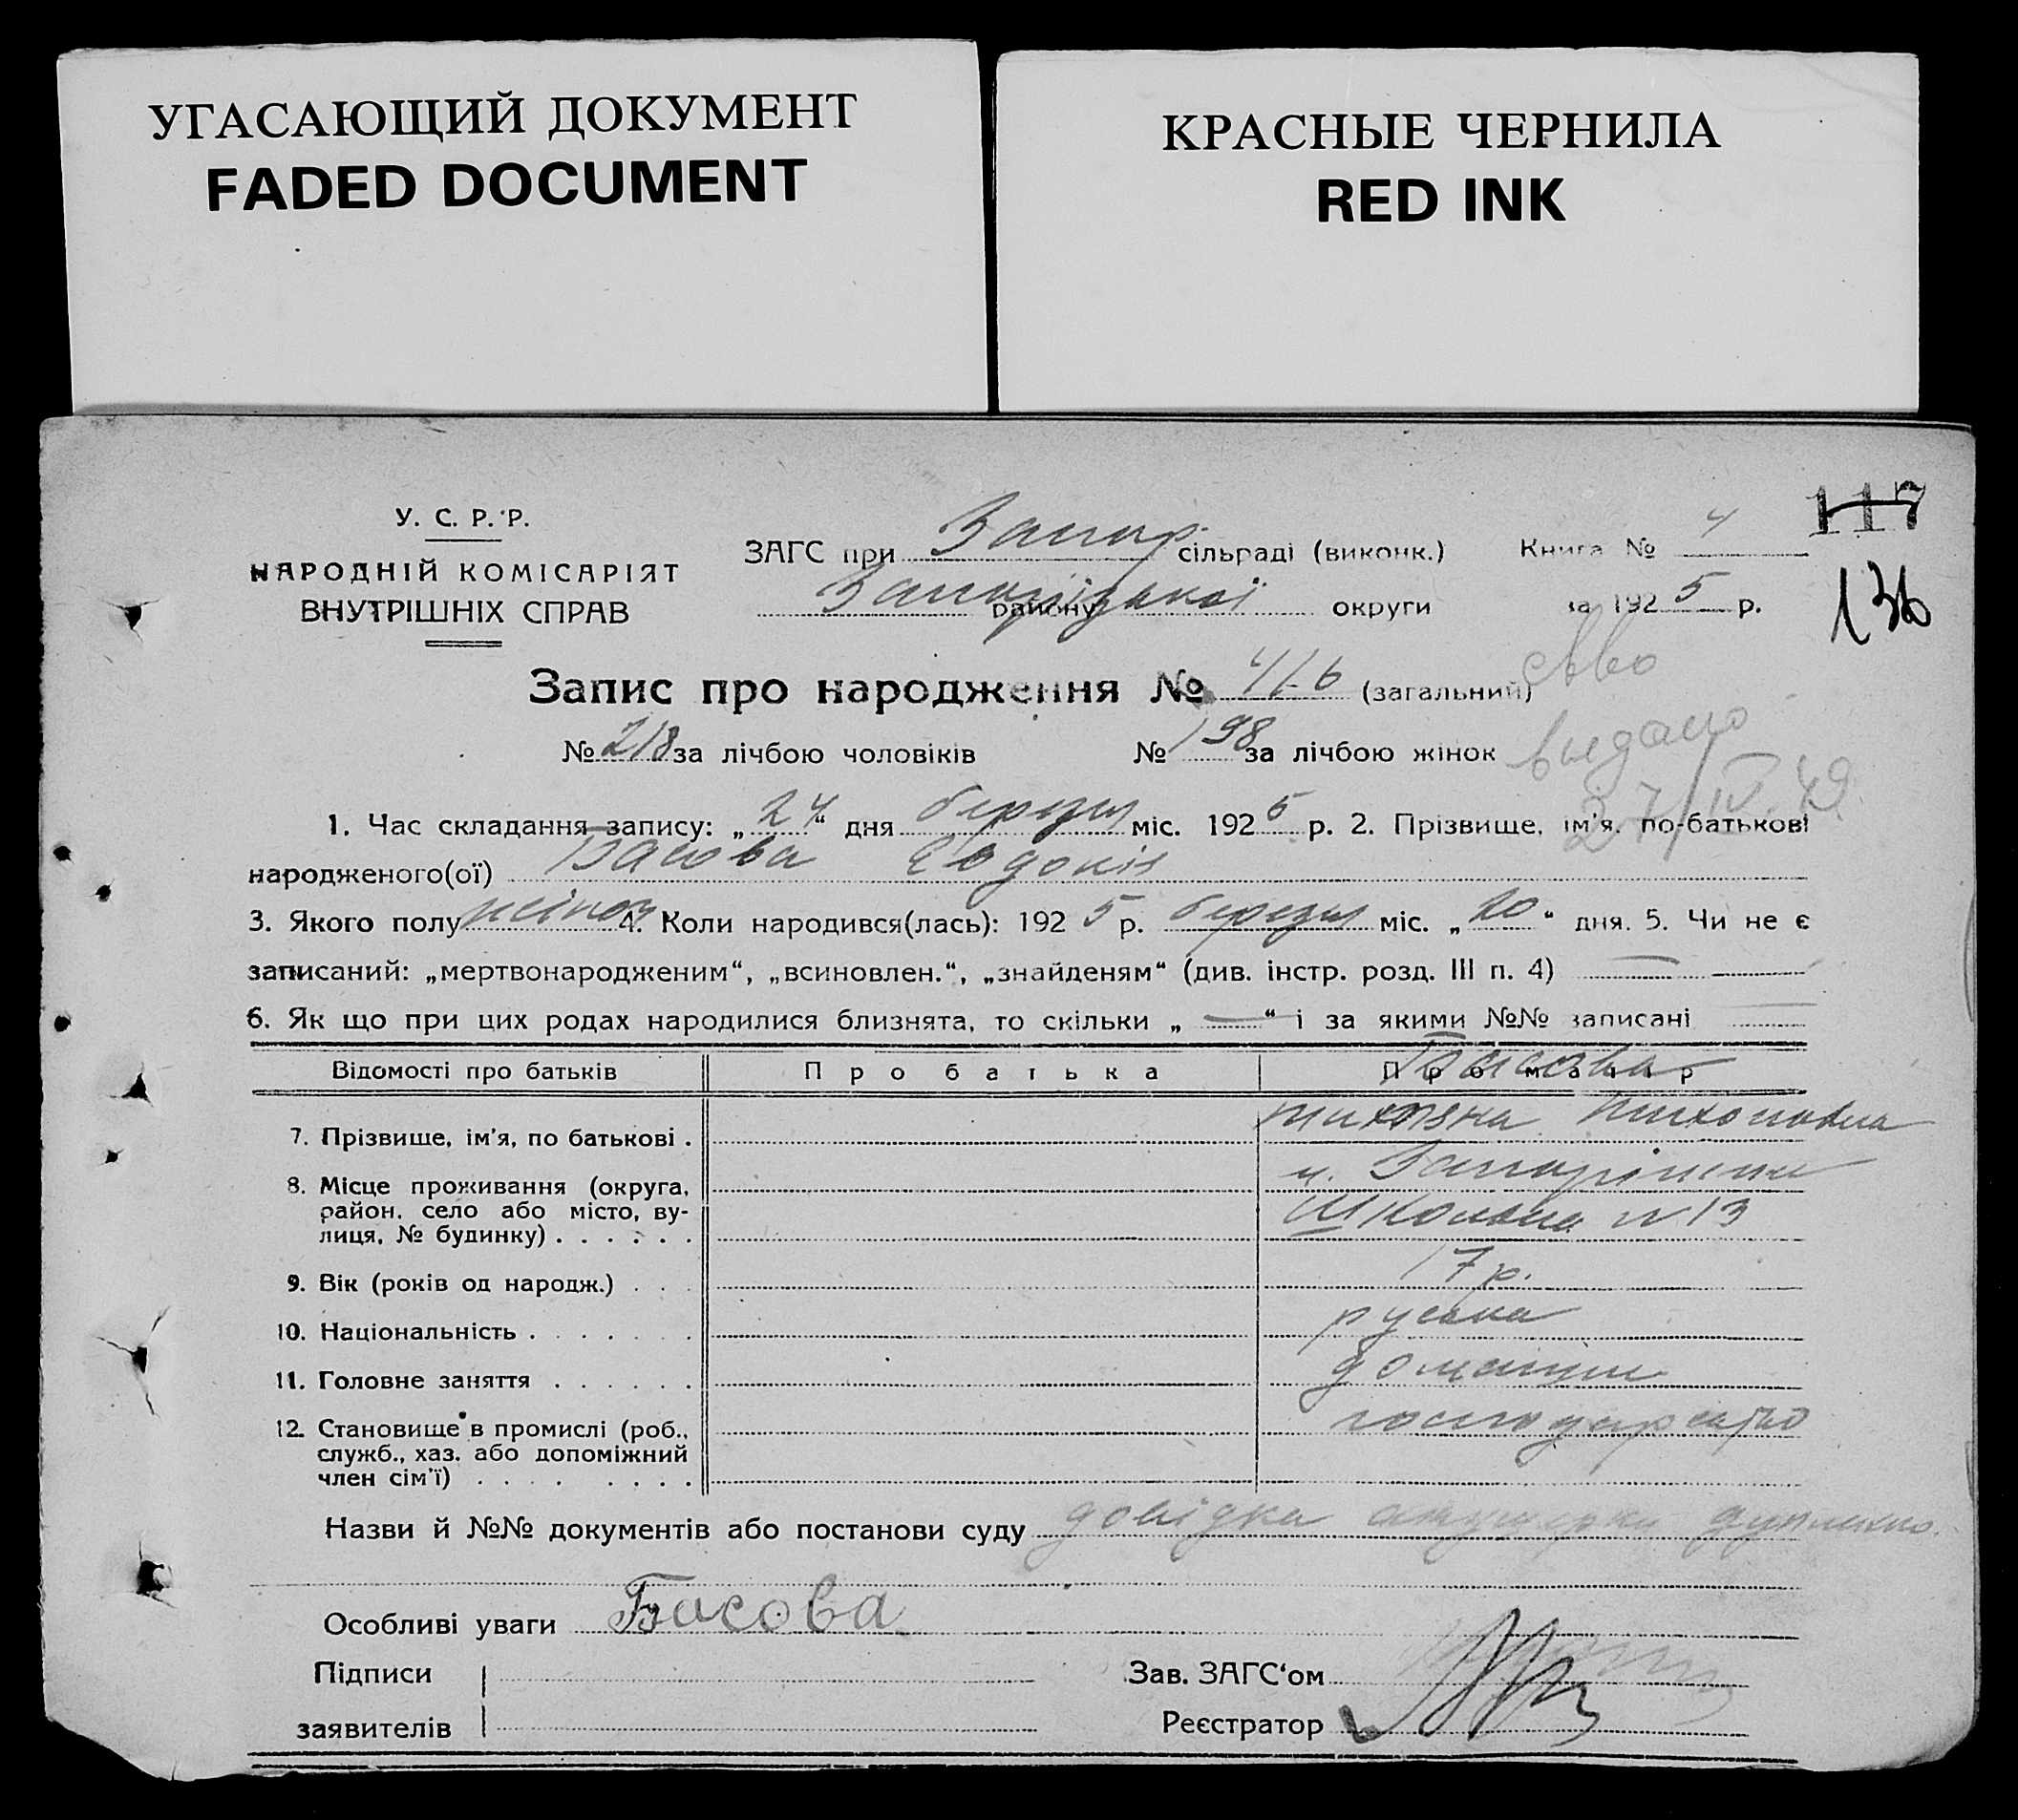 УГАСАЮЩИЙ ДОКУМЕНТ
FADED DOCUMENT
КРАСНЫЕ ЧЕРНИЛА
RED INK
У. С. Р. Р.
НАРОДНІЙ КОМІСАРІЯТ
ВНУТРІШНІХ СПРАВ
ЗАГС при Запор. сільраді (виконк.)
Запорізької району округи
Книга № 4
за 1925 р.
117
136
Запис про народження № 416 (загальний)
№ 218 за лічбою чоловіків № 198 за лічбою жінок
выдано
27/IV 49
1. Час складання запису: „24“ дня березня міс. 1925 р. 2. Прізвище, ім'я, по-батькові
народженого(ої) Басова Євдокія
3. Якого полу жіноч 4. Коли народився(лась): 1925 р. березня міс. „20“ дня. 5. Чи не є
записаний: „мертвонародженим“, „всиновлен.“, „знайденям“ (див. інстр. розд. III п. 4) —
6. Як що при цих родах народилися близнята, то скільки „—“ і за якими №№ записані
Відомості про батьків Про батька Про матір
Басова
7. Прізвище, ім'я, по батькові . Тихоновна
8. Місце проживання (округа, м. Запоріжжя
район, село або місто, ву- Школьна № 13
лиця, № будинку) . . . . . .
9. Вік (років од народж.) . . . 17 р.
10. Національність . . . . . . . руська
11. Головне заняття . . . . . . домашнє
12. Становище в промислі (роб., господарство
служб., хаз. або допоміжний
член сім'ї) . . . . . . . .
Назви й №№ документів або постанови суду довідка акушерки
Особливі уваги Басова
Підписи
заявителів
Зав. ЗАГС‘ом
Реєстратор